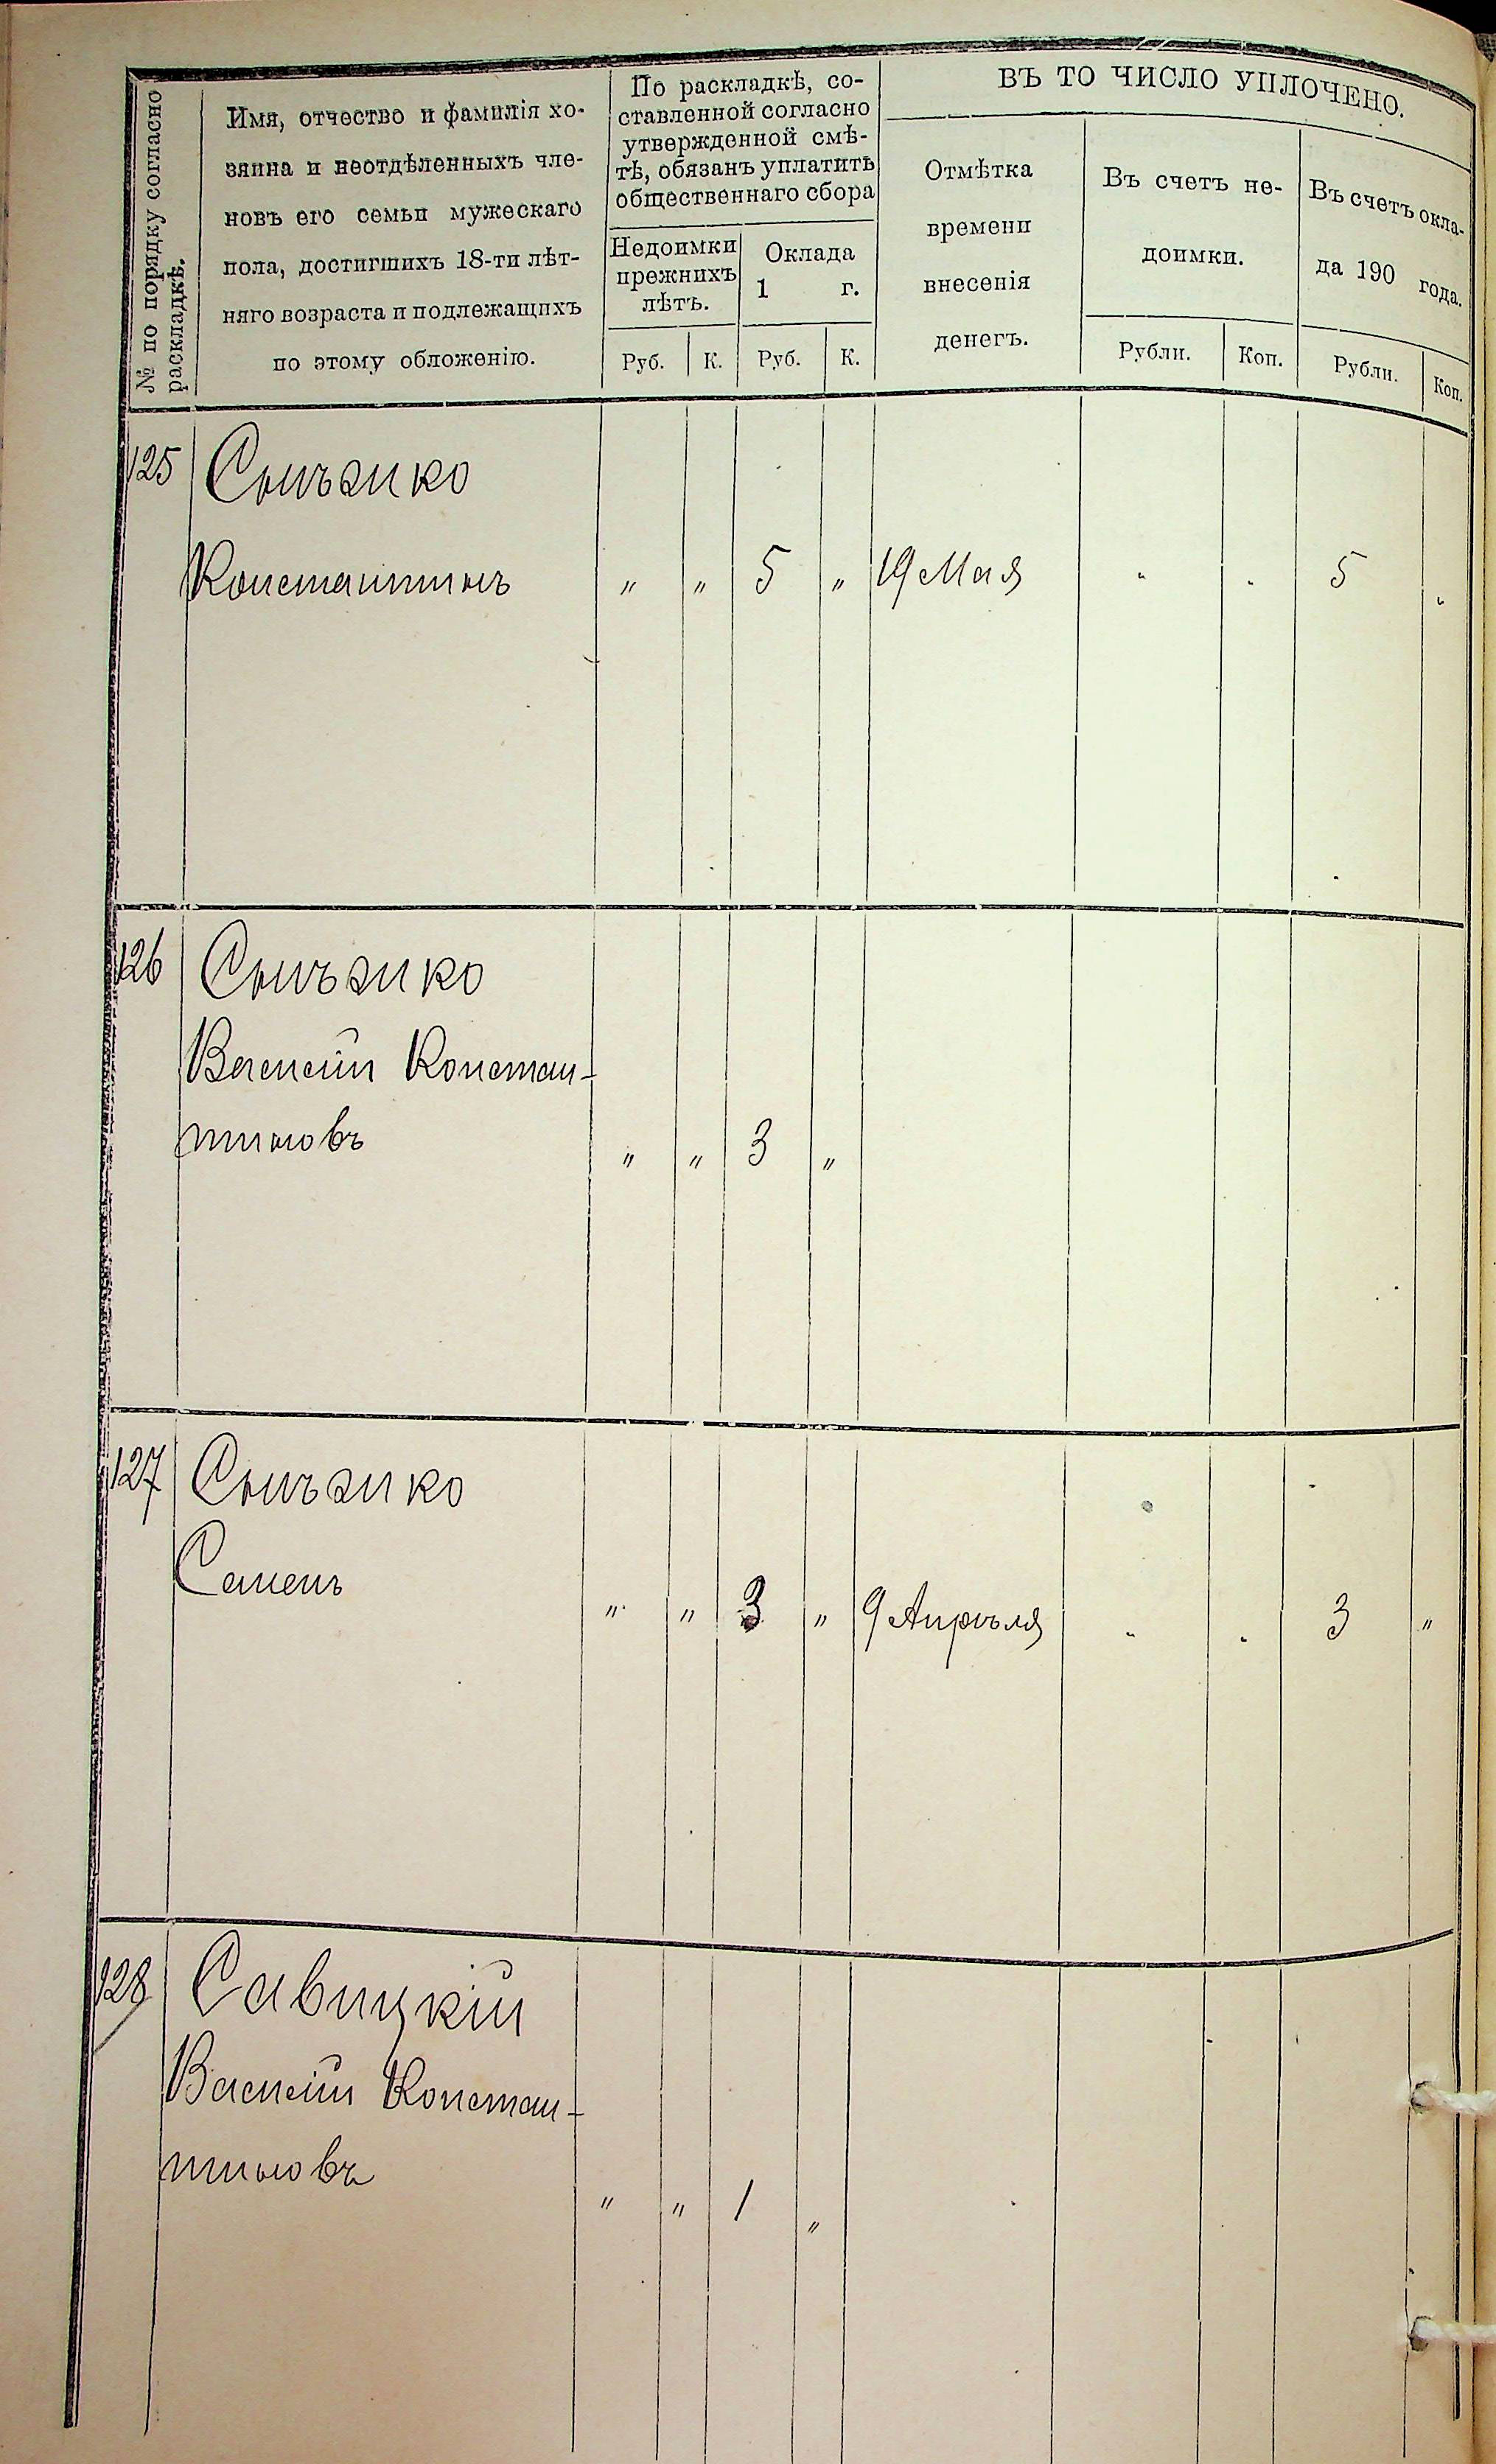 № по порядку согласно
раскладкѣ.
Имя, отчество и фамилія хо-
зяина и неотдѣленныхъ чле-
новъ его семьи мужескаго
пола, достигшихъ 18-ти лѣт-
няго возраста и подлежащихъ
по этому обложенію.
По раскладкѣ, со-
ставленной согласно
утвержденной смѣ-
тѣ, обязанъ уплатить
общественнаго сбора
Недоимки
прежнихъ
лѣтъ.
Оклада
1 г.
Руб. К. Руб. К.
ВЪ ТО ЧИСЛО УПЛОЧЕНО.
Отмѣтка
времени
внесенія
денегъ.
Въ счетъ не-
доимки.
Рубли. Коп.
Въ счетъ окла-
да 190 года.
Рубли. Коп.
125 Снѣзико
Константинъ " " 5 " 19 Мая " " 5 "
126 Снѣзико
Василій Констан-
тиновъ " " 3 "
127 Снѣзико
Семенъ " " 3 " 9 Апрѣля " " 3 "
128 Савицкій
Василій Констан-
тиновъ " " 1 "